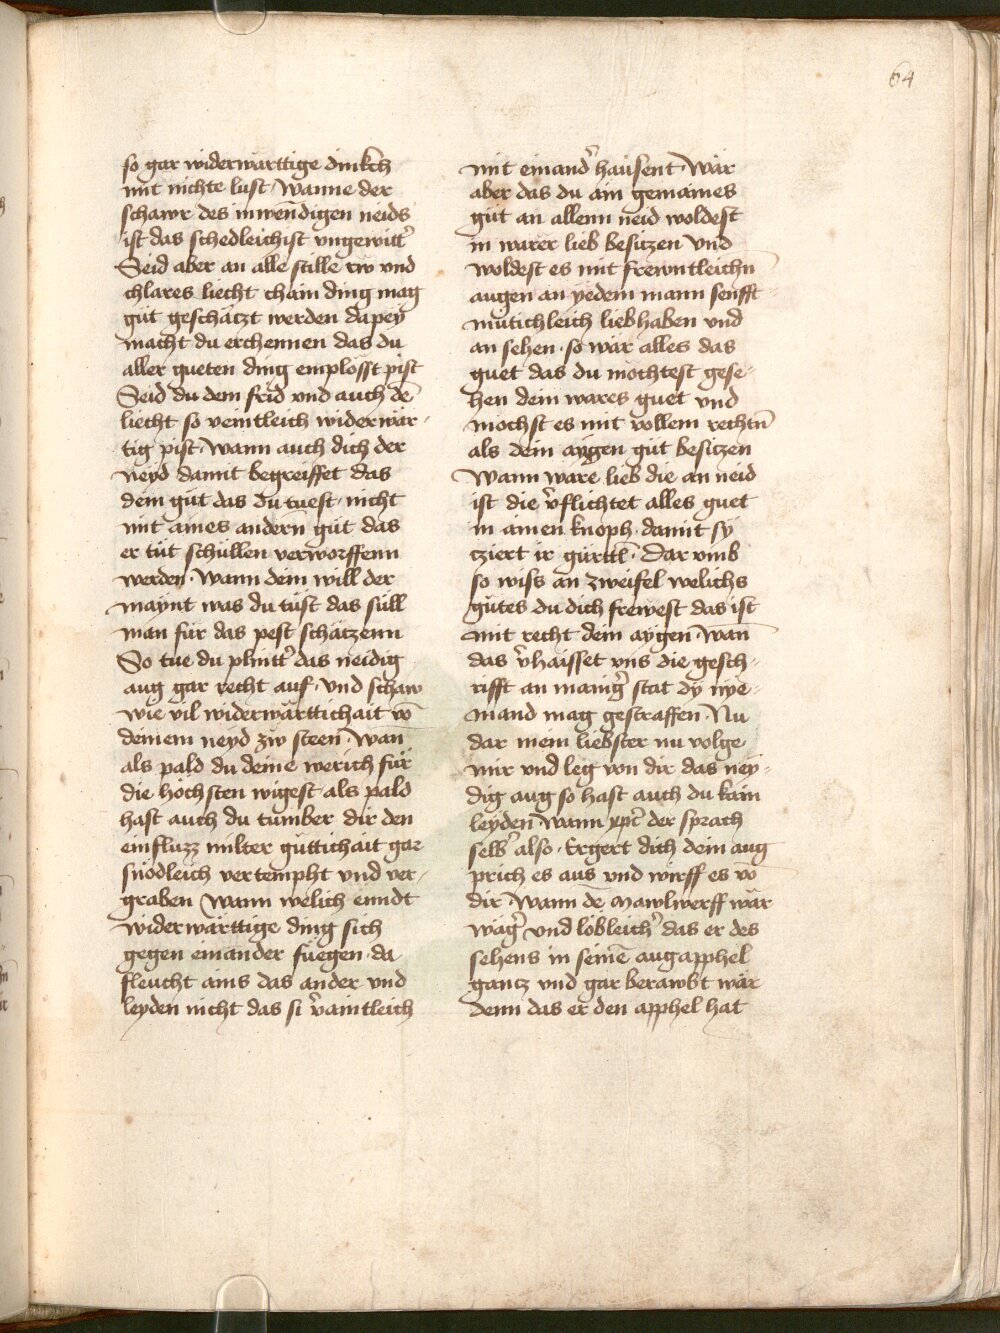 64
so gar widerwärttige dinkch
mit nichte lust Wanne der
schawr des inwendigen neids
ist das schedleichist vngewitt᾽
Seid aber an alle stille rw vnd
chlares liecht chain ding mag
güt geschäczt werden dapey
macht du erchennen das du
aller gueten ding emplösst pist
Seid du dem frid vnd auch dē
liecht so veintleich widerwär-
tig pist· Wann auch dich der
neyd damit begreiffet das
dein güt das du tuest· nicht
mit aines andern güt das
er tüt schüllen verworffenn
werden· Wann dein will der
maynt was du tüst das süll
man für das pest schäczenn
So tue du plintt᾽ das neidig
aug gar recht auf· vnd schaw
wie vil widerwärttichait vō
deinem neyd zw steen· Wan̄
als pald du deine werich für
die höchsten wigest als pald
hast auch du tumber dir den
einfluzz milter güttichait gar
snödleich vertempht vnd ver-
graben Wann welich enndt
widerwärttige ding sich
gegen einander füegen· da
fleucht ains das ander vnd
leyden nicht das si v᾽aintleich
mit einand᾽ hausent· Wär
aber das du ain gemaines
güt an allenn neid woldest
in warer lieb besiczen Vnd
woldest es mit frewntleichn̄
augen an yedem mann senfft-
mütichleich liebhaben vnd
an sehen· so wär alles das
guet das du möchtest gese-
hen dein wares guet vnd
möchst es mit vollem rechtn̄
als dein aygen güt besiczen
Wann ware lieb die an neid
ist die v᾽flichtet alles guet
in ainen knoph· damit sy
cziert ir gürttl̄· Dar vmb
so wiss an zweifel welichs
gütes du dich frewest das ist
mit recht dein aygen· wan̄
das v᾽haisset vns die gesch-
rifft an manig᾽ stat dy nye-
mand mag gestraffen· Nu
dar mein liebster nu volge
mir vnd leg von dir das ney-
dig aug so hast auch du kain
leyden̄ Wann xpc᾽ der sprach
selb᾽ also· Ergert dich dein aug
prich es aus vnd wirff es vō
dir· Wann dē Mawlwerff wär
wäg᾽ vnd löbleich᾽ das er des
sehens in seinē augapphel
gancz vnd gar berawbt wär
denn das er den apphel hat